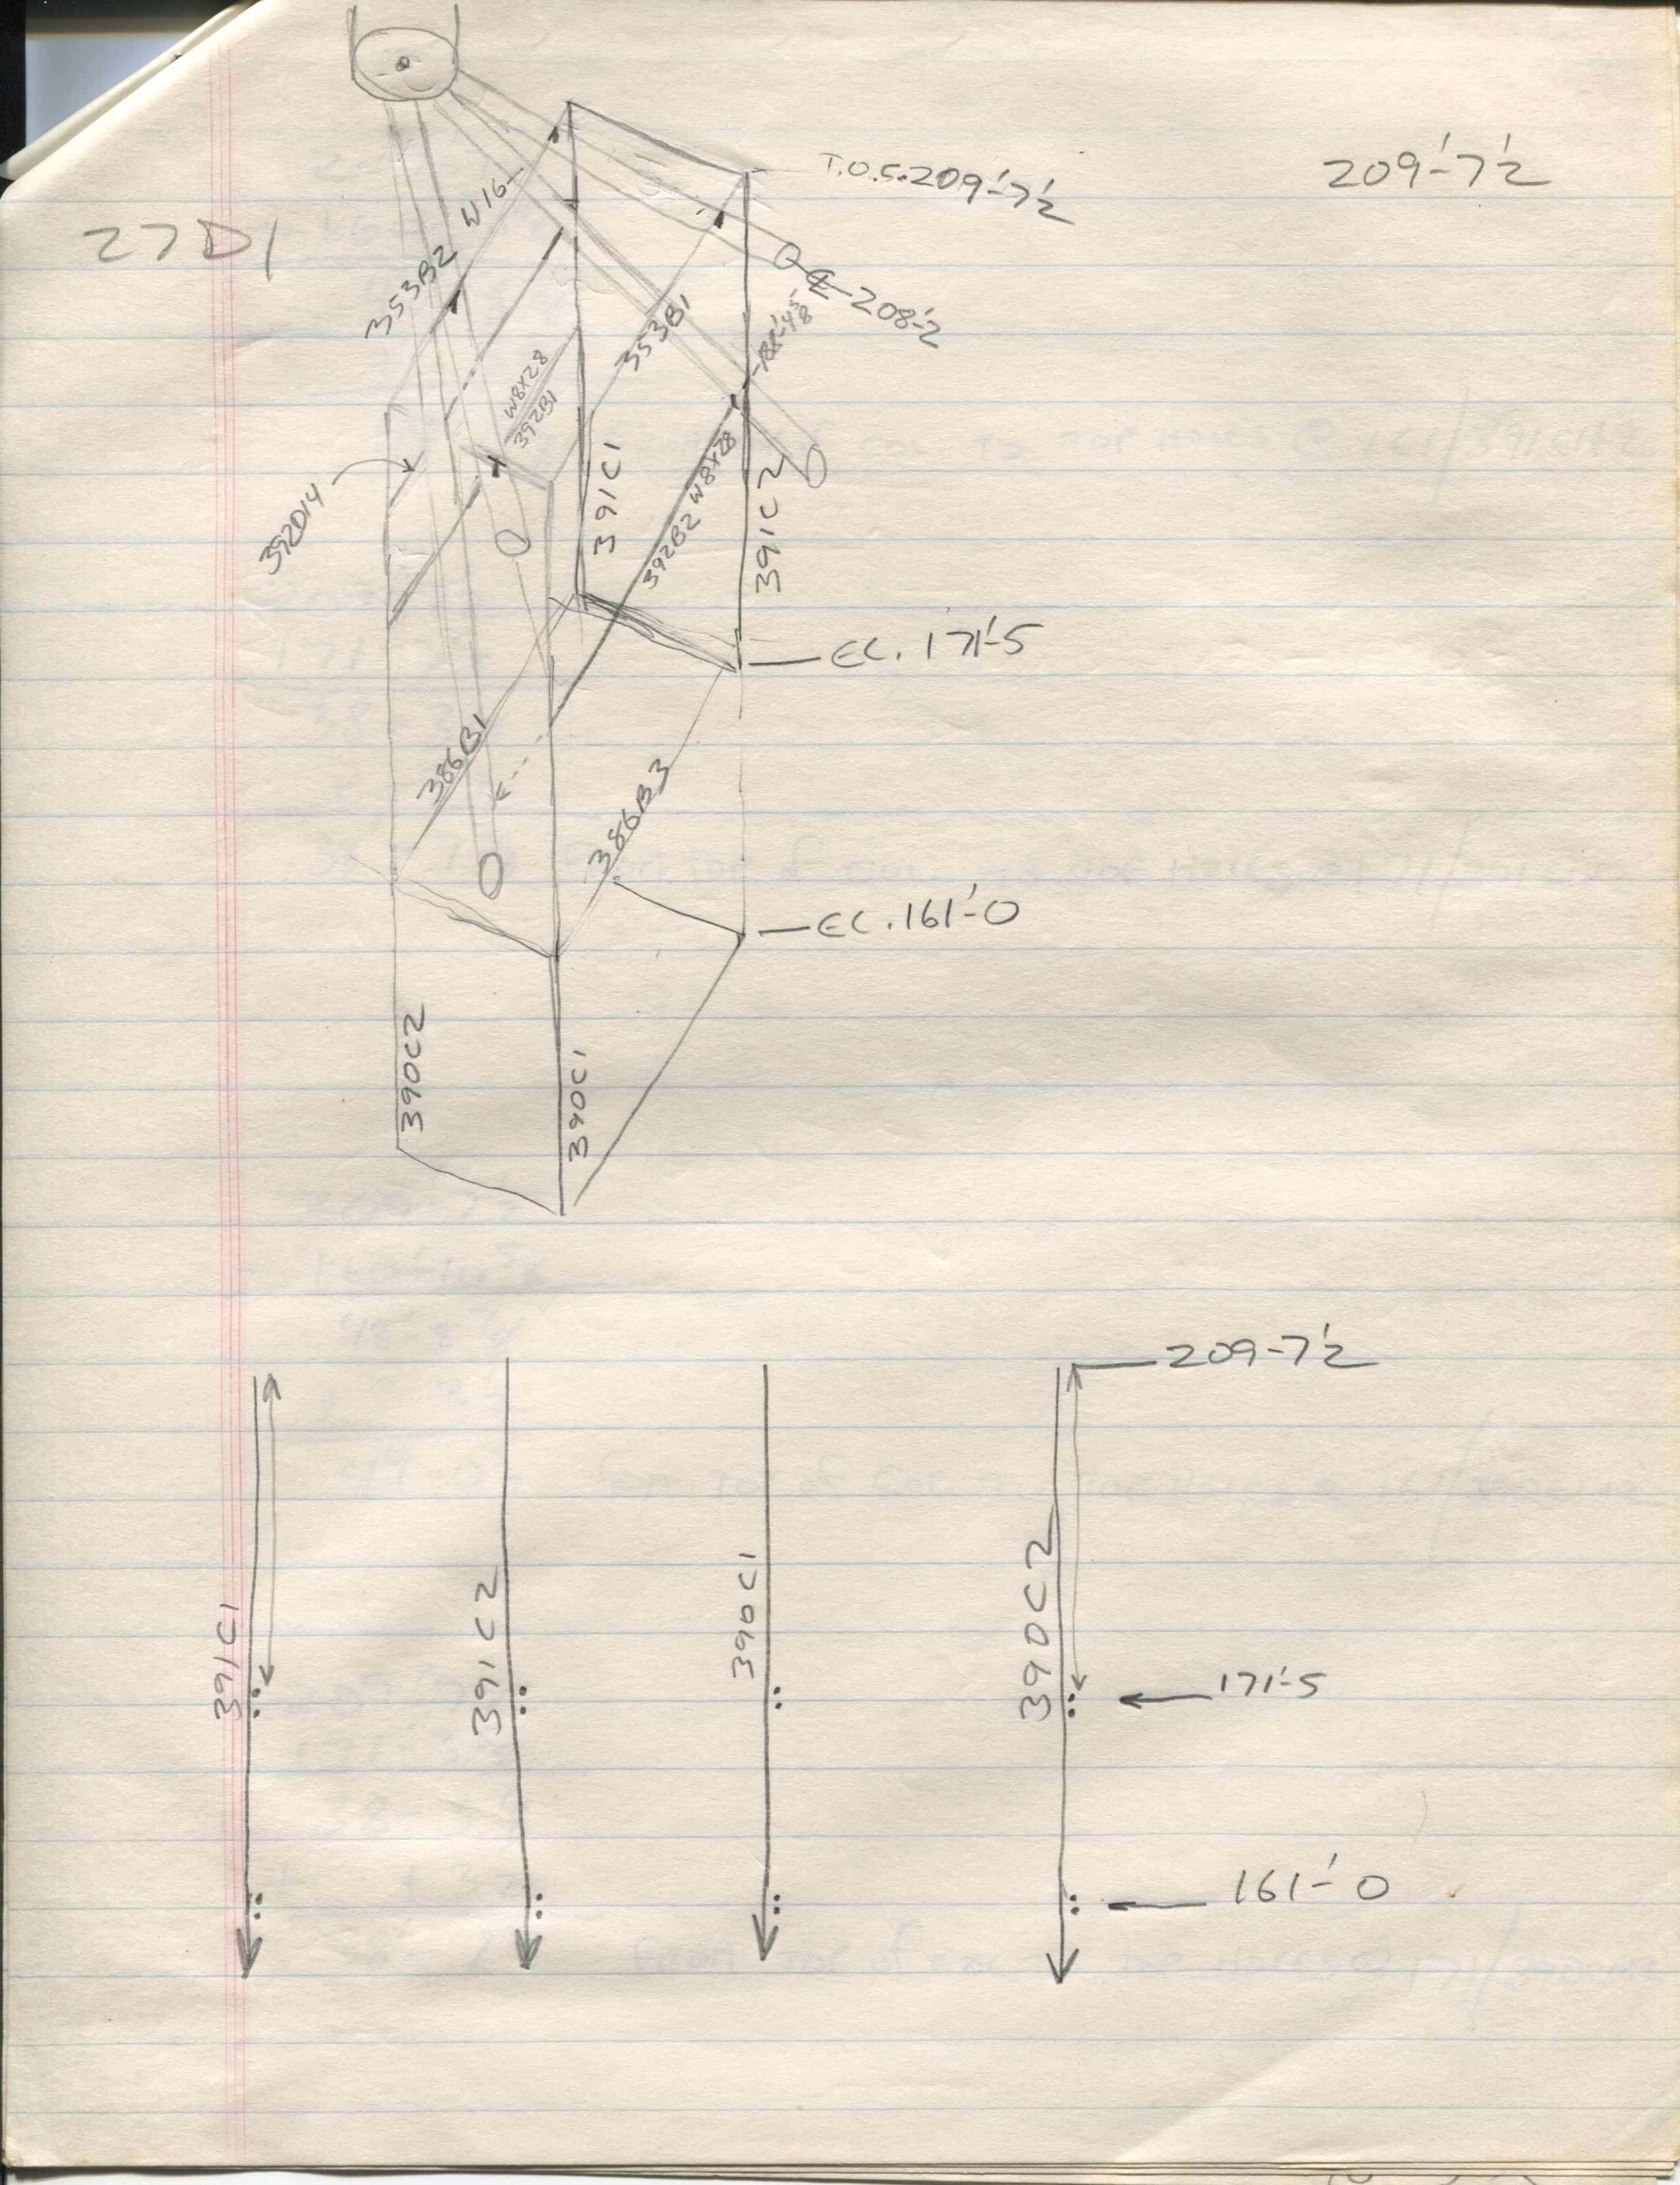 209'-7 1/2
T.O.S. 209'-7 1/2
27D1
W16
353B2
℄ 208'-2
353B1
188'-4 5/8
W8X28
392B1
392D14
391C1
392B2 W8X28
391C2
EL. 171'-5
386B1
386B3
EL. 161'-0
390C2
390C1
209-7 1/2
391C1
391C2
390C1
390C2
171'-5
161'-0